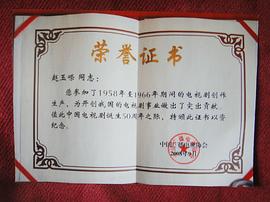 荣誉证书
赵玉嵘 同志：
您参加了1958年至1966年期间的电视剧创作
生产，为开创我国的电视剧事业做出了突出贡献，
值此中国电视剧诞生50周年之际，特颁此证书以资
纪念。
中国广播电视协会
2008年9月